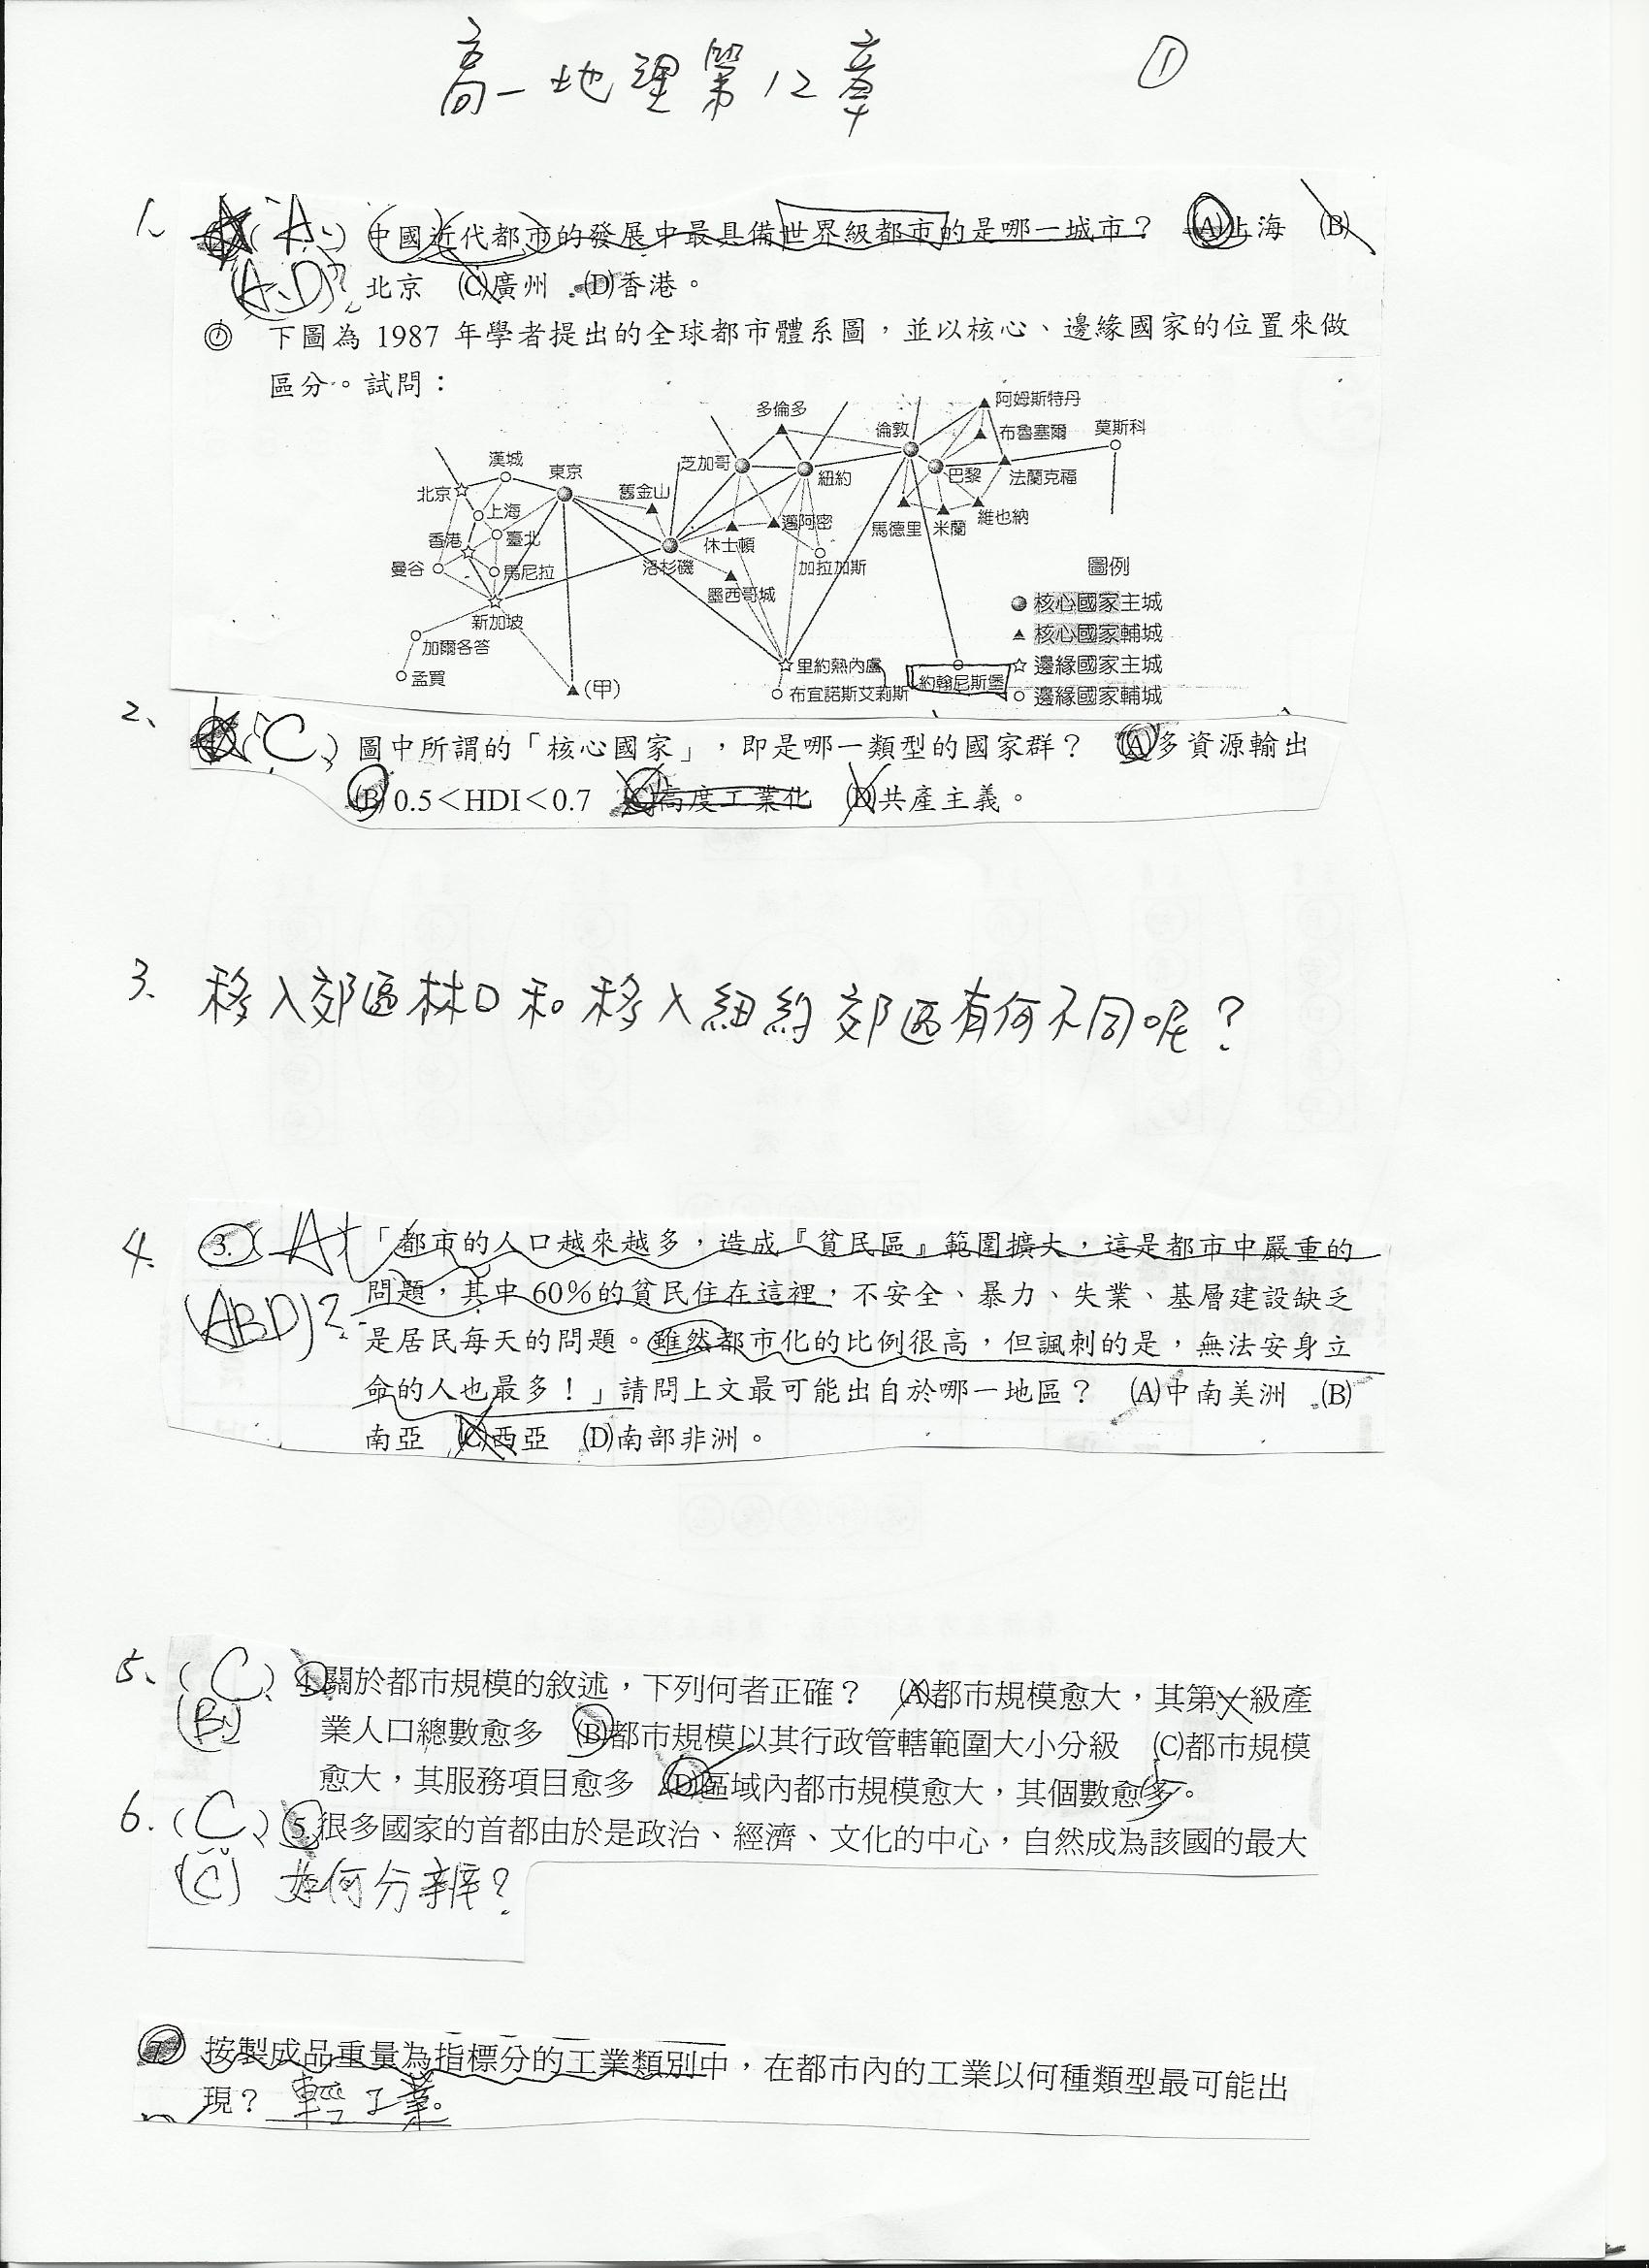 高一地理第12章 ①
1、 (A、) 中國近代都市的發展中最具備世界級都市的是哪一城市? (A)上海 (B)
(A、D)? 北京 (C)廣州 (D)香港。
下圖為 1987 年學者提出的全球都市體系圖,並以核心、邊緣國家的位置來做
區分。試問:
阿姆斯特丹
多倫多
倫敦
布魯塞爾
莫斯科
漢城
東京
芝加哥
紐約
巴黎
法蘭克福
北京
舊金山
上海
邁阿密
馬德里
米蘭
維也納
香港
臺北
休士頓
曼谷
馬尼拉
洛杉磯
加拉加斯
圖例
墨西哥城
核心國家主城
新加坡
核心國家輔城
加爾各答
里約熱內盧
邊緣國家主城
孟買
(甲)
布宜諾斯艾莉斯
約翰尼斯堡
邊緣國家輔城
2、 (C、) 圖中所謂的「核心國家」,即是哪一類型的國家群? (A)多資源輸出
(B) 0.5<HDI<0.7 (C)高度工業化 (D)共產主義。
3、 移入郊區林口和移入紐約郊區有何不同呢?
4、 3. (A) 「都市的人口越來越多,造成『貧民區』範圍擴大,這是都市中嚴重的
(ABD)? 問題,其中 60%的貧民住在這裡,不安全、暴力、失業、基層建設缺乏
是居民每天的問題。雖然都市化的比例很高,但諷刺的是,無法安身立
命的人也最多!」請問上文最可能出自於哪一地區? (A)中南美洲 (B)
南亞 (C)西亞 (D)南部非洲。
5、 (C、) 4.關於都市規模的敘述,下列何者正確? (A)都市規模愈大,其第一級產
(B) 業人口總數愈多 (B)都市規模以其行政管轄範圍大小分級 (C)都市規模
愈大,其服務項目愈多 (D)區域內都市規模愈大,其個數愈多。
6. (C、) 5.很多國家的首都由於是政治、經濟、文化的中心,自然成為該國的最大
(C) 如何分辨?
7. 按製成品重量為指標分的工業類別中,在都市內的工業以何種類型最可能出
現? 輕工業。